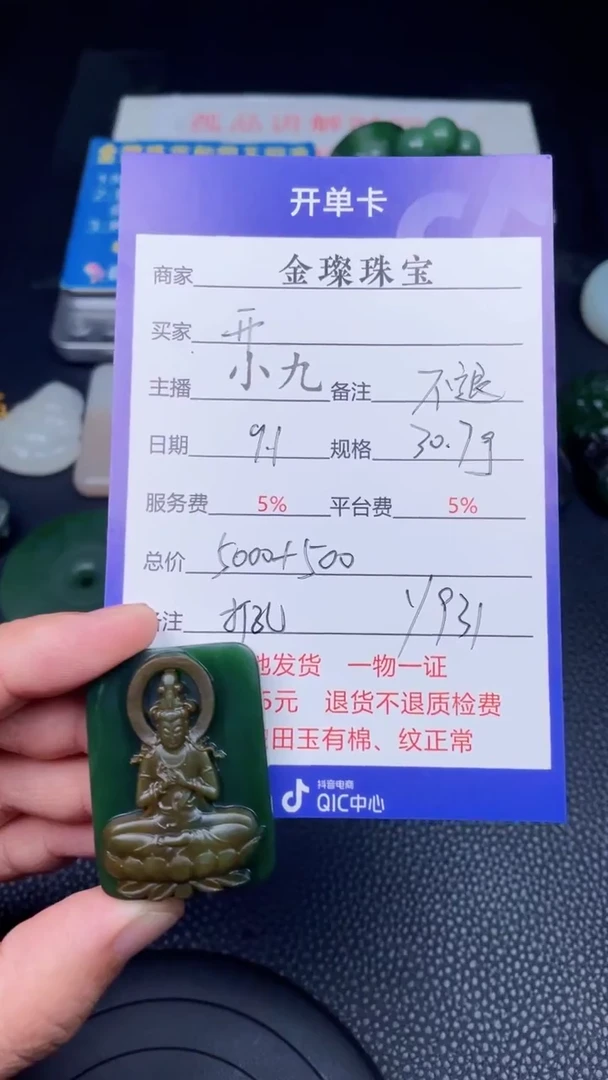 开单卡
商家 金璨珠宝
买家 开
主播 小九 备注 不退
日期 9.1 规格 30.7g
服务费 5% 平台费 5%
总价 5000+500
备注 打孔
地发货 一物一证
5元 退货不退质检费
田玉有棉、纹正常
抖音电商
QIC中心